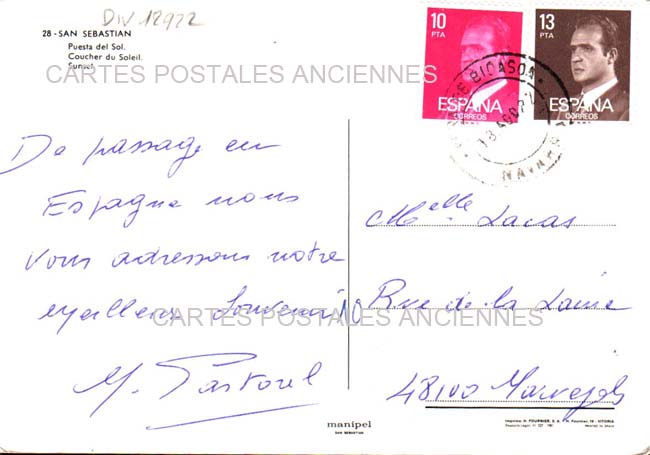 DIV 12922
28 - SAN SEBASTIAN
Puesta del Sol.
Coucher du Soleil.
Sunset.
CARTES POSTALES ANCIENNES
10 PTA
ESPAÑA
CORREOS
13 PTA
ESPAÑA
CORREOS
BIDASOA
NAVARRA
De passage en
Espagne nous
vous adressons notre
meilleur souvenir
M. Pastorel
Melle Lacas
10 Rue de la Laine
CARTES POSTALES ANCIENNES
48100 Marvejols
manipel
SAN SEBASTIAN
Imprime: H. FOURNIER, S. A. - VITORIA